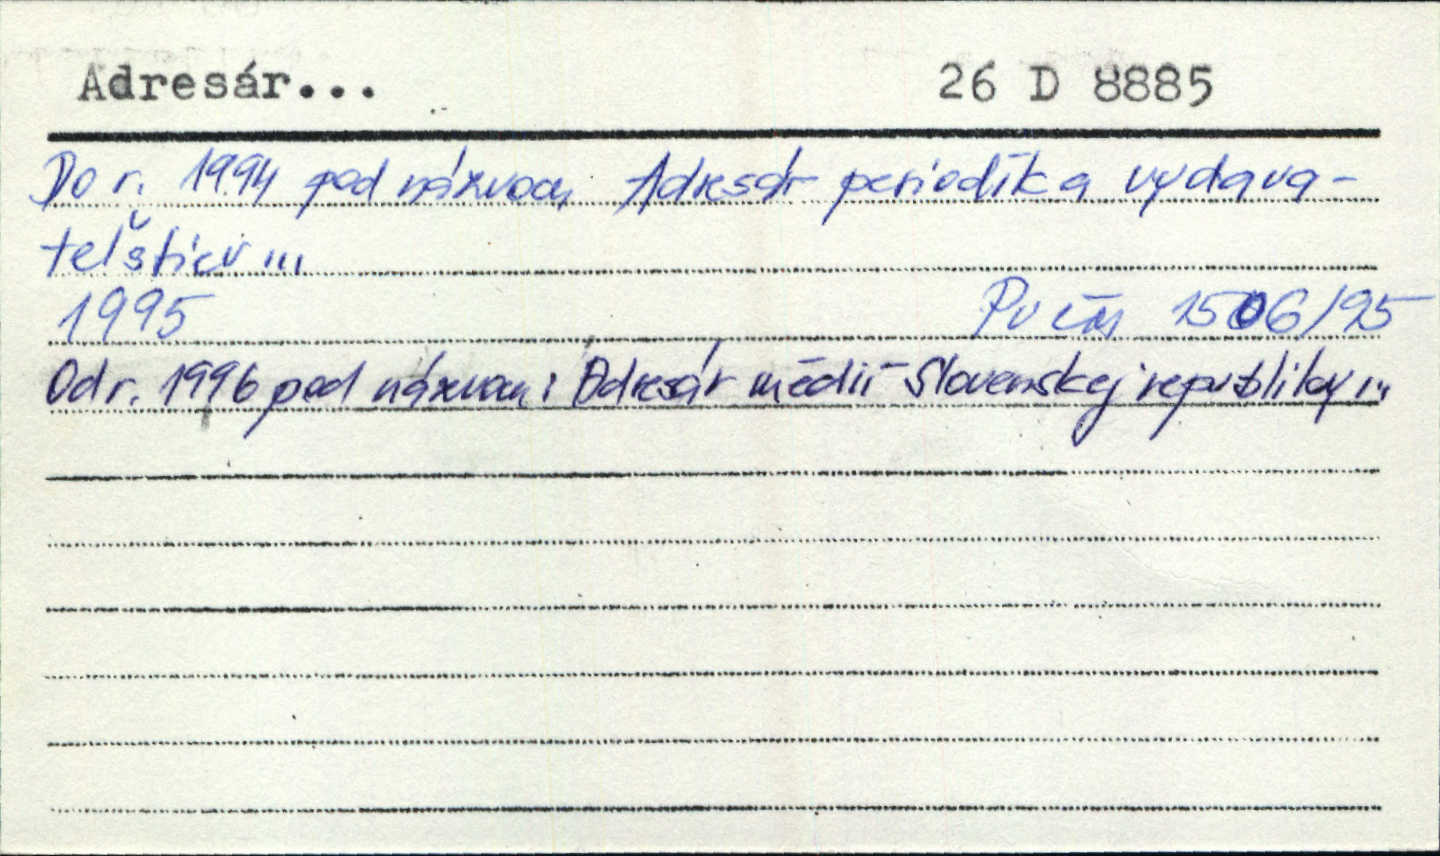 Adresár... 26 D 8885
Do r. 1994 pod názvom Adresár periodík a vydava-
telštiev ...
1995 Pv čas 1506/95
Od r. 1996 pod názvom: Adresár médií Slovenskej republiky...